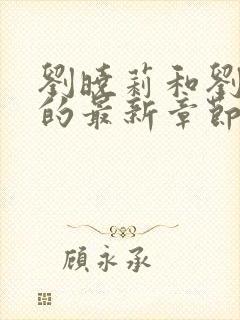 劉曉莉和劉
的最新章節
顧永承